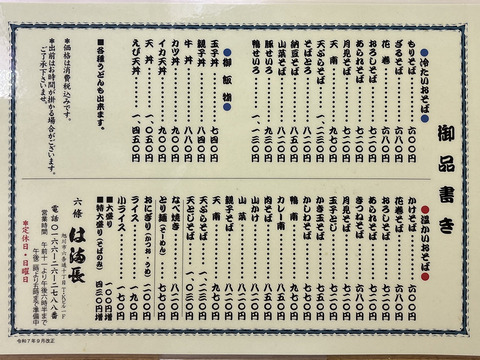 御品書き
●冷たいおそば●
もりそば………六〇〇
ざるそば………六八〇
花巻………六八〇
おろしそば………七二〇
あられそば………七二〇
月見そば………七〇〇
天南………九〇〇
天ぷらそば………一、二三〇
そばとろ………九〇〇
納豆そば………八二〇
山菜そば………八二〇
豚せいろ………九〇〇
鴨せいろ………一、一三〇
●御飯物●
玉子丼………七四〇
親子丼………八四〇
カツ丼………九〇〇
牛丼………
イカ天丼………九〇〇
天丼………一、〇五〇
えび天丼………一、四五〇
■各種うどんも出来ます。
＊価格は消費税込みです。
＊出前はお時間が掛かる場合がございます。
ご了承下さいませ。
●温かいおそば●
かけそば………六〇〇
花巻そば………六八〇
おろしそば………七二〇
あられそば………七二〇
きつねそば………七〇〇
月見そば………七〇〇
玉子とじ………七〇〇
かき玉そば………
かしわそば………
鴨南………
カレー南………
肉そば………八二〇
山かけ………
山菜………八二〇
親子そば………
天南………九〇〇
天ぷらそば………一、二三〇
天とじそば………
なべ焼き………
とり麺(らーめん)………
おにぎり(かつお・うめ)
ライス………
小ライス………一七〇
■大盛り………一〇〇円増
■特大盛り(そばのみ)………四三〇円増
六條 は満長
旭川市六条通十丁目
電話(〇一六六)二六-二七八八番
営業時間 午前十一より午後六時半まで
＊定休日・日曜日
令和7年9月改正